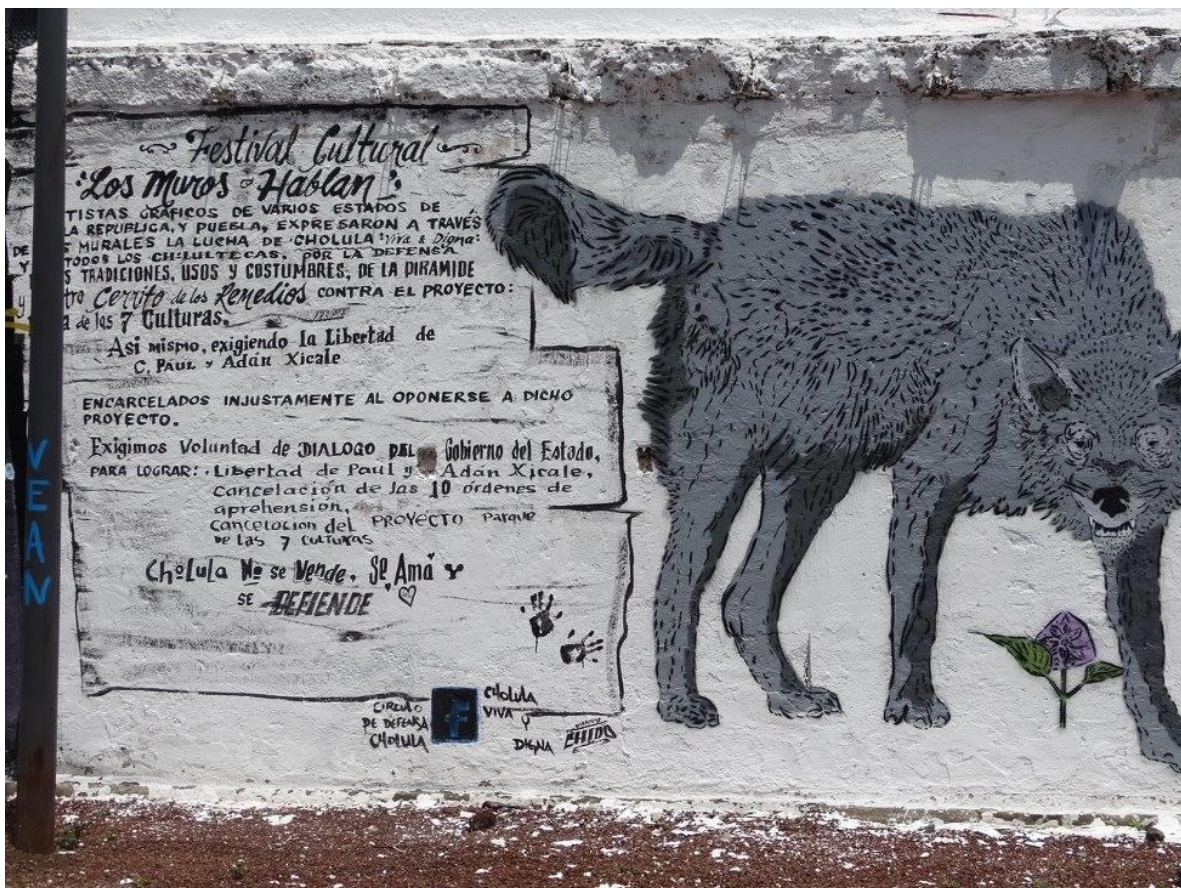 Festival Cultural
"Los Muros Hablan"
TISTAS GRÁFICOS DE VARIOS ESTADOS DE
LA REPUBLICA, Y PUEBLA, EXPRESARON A TRAVÉS
DE S MURALES LA LUCHA DE CHOLULA "Viva & Digna"
Y TODOS LOS CHOLULTECAS, POR LA DEFENSA
S TRADICIONES, USOS Y COSTUMBRES, DE LA PIRAMIDE
y tro Cerrito de los Remedios CONTRA EL PROYECTO:
a de las 7 Culturas.
Asi mismo, exigiendo la Libertad de
C. PAUL Y Adán Xicale
ENCARCELADOS INJUSTAMENTE AL OPONERSE A DICHO
PROYECTO.
Exigimos Voluntad de DIALOGO DEL Gobierno del Estado,
PARA LOGRAR: Libertad de Paul y Adán Xicale,
cancelación de las 10 órdenes de
aprehensión,
cancelacion del PROYECTO Parque
De las 7 culturas
Cholula No se Vende, Se Ama Y
SE DEFIENDE
CIRCULO
DE DEFENSA
CHOLULA
f
CHOLULA
VIVA Y
DIGNA
CHIDO
VEAN